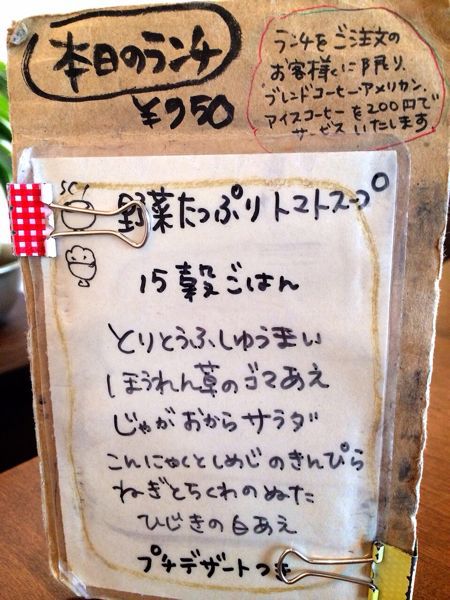 本日のランチ
¥950
ランチをご注文の
お客様に限り
ブレンドコーヒー・アメリカン・
アイスコーヒーを200円で
サービスいたします
野菜たっぷりトマトスープ
15穀ごはん
とりとうふしゅうまい
ほうれん草のゴマあえ
じゃがおからサラダ
こんにゃくとしめじのきんぴら
ねぎとちくわのぬた
ひじきの白あえ
プチデザートつき